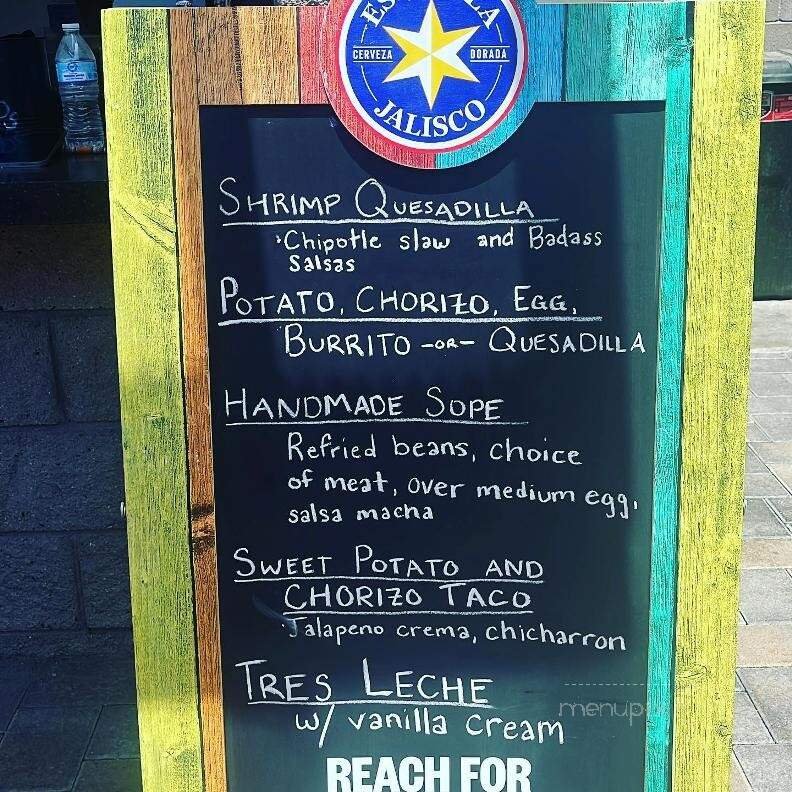 CERVEZA DORADA
JALISCO
SHRIMP QUESADILLA
·Chipotle slaw and Badass
Salsas
POTATO, CHORIZO, EGG,
BURRITO -OR- QUESADILLA
HANDMADE SOPE
Refried beans, choice
of meat, over medium egg,
salsa macha
SWEET POTATO AND
CHORIZO TACO
·Jalapeno crema, chicharron
TRES LECHE
w/ vanilla cream
REACH FOR